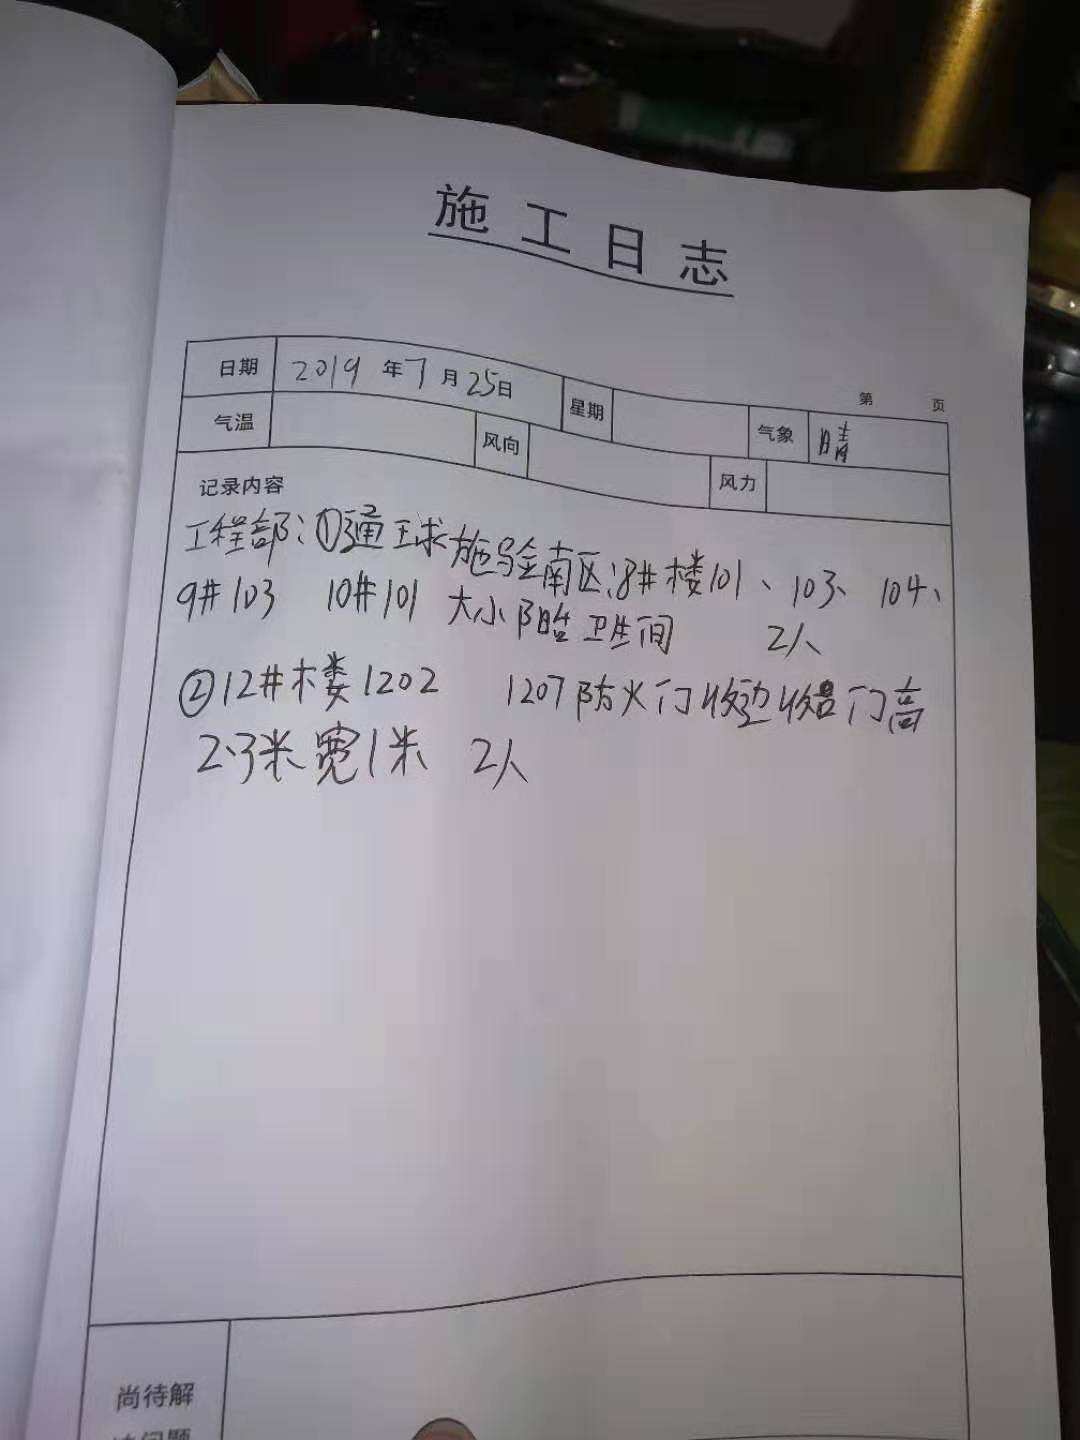 施工日志
第 页
日期 2019 年 7 月 25 日 星期 气象 晴
气温 风向 风力
记录内容
工程部:①通球施验南区:8#楼101、103、104、
9#103 10#101 大小阳台卫生间 2人
②12#楼1202 1207防火门收边收口门高
2.3米宽1米 2人
尚待解